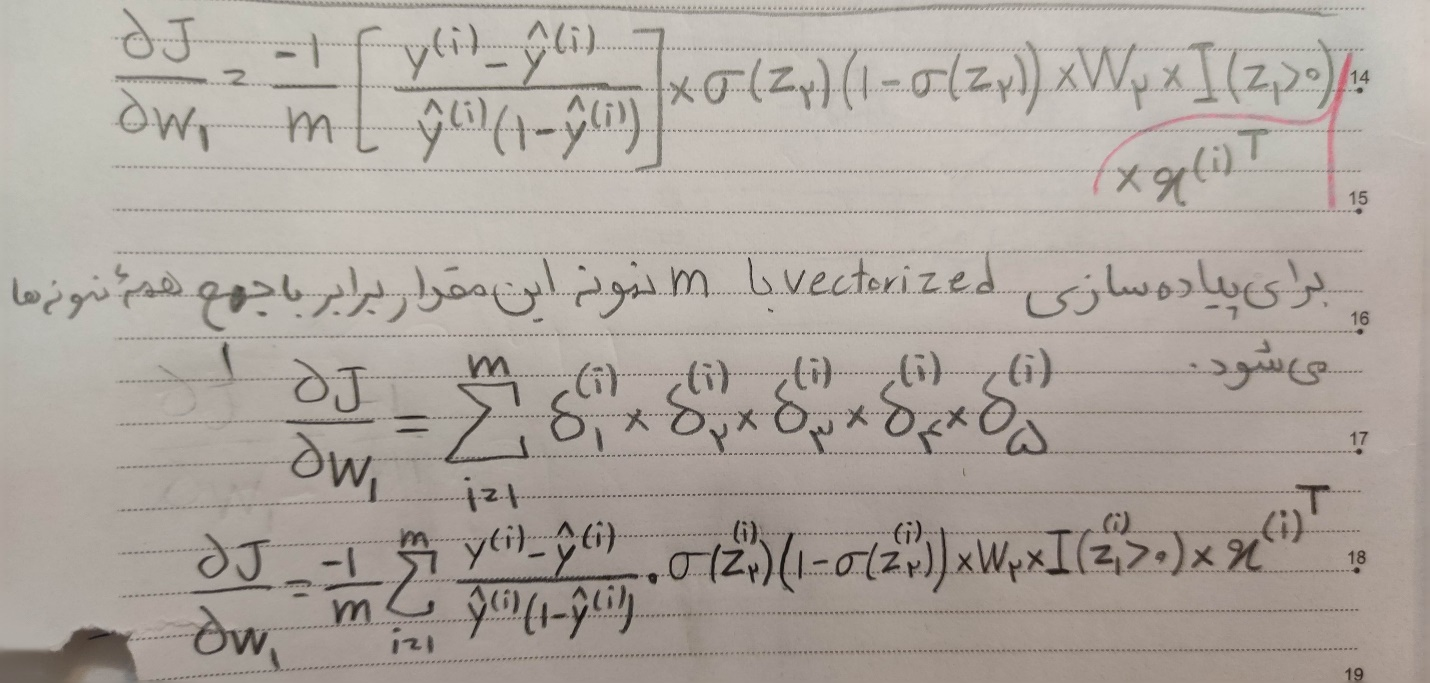 ∂J/∂W₁ = -1/m [ (y⁽ⁱ⁾ - ŷ⁽ⁱ⁾) / (ŷ⁽ⁱ⁾(1-ŷ⁽ⁱ⁾)) ] × σ(z۲)(1-σ(z۲)) × W۲ × I(z₁>۰) 14
× x⁽ⁱ⁾ᵀ
15
برای پیاده‌سازی vectorized با m نمونه این مقدار برابر با جمع همهٔ نمونه‌ها
16
می‌شود.
∂J/∂W₁ = Σ_{i=1}^{m} δ₁⁽ⁱ⁾ × δ۲⁽ⁱ⁾ × δ۳⁽ⁱ⁾ × δ۴⁽ⁱ⁾ × δ۵⁽ⁱ⁾
17
∂J/∂W₁ = -1/m Σ_{i=1}^{m} (y⁽ⁱ⁾ - ŷ⁽ⁱ⁾) / (ŷ⁽ⁱ⁾(1-ŷ⁽ⁱ⁾)) . σ(z۲⁽ⁱ⁾)(1-σ(z۲⁽ⁱ⁾)) × W۲ × I(z₁⁽ⁱ⁾>۰) × x⁽ⁱ⁾ᵀ 18
19